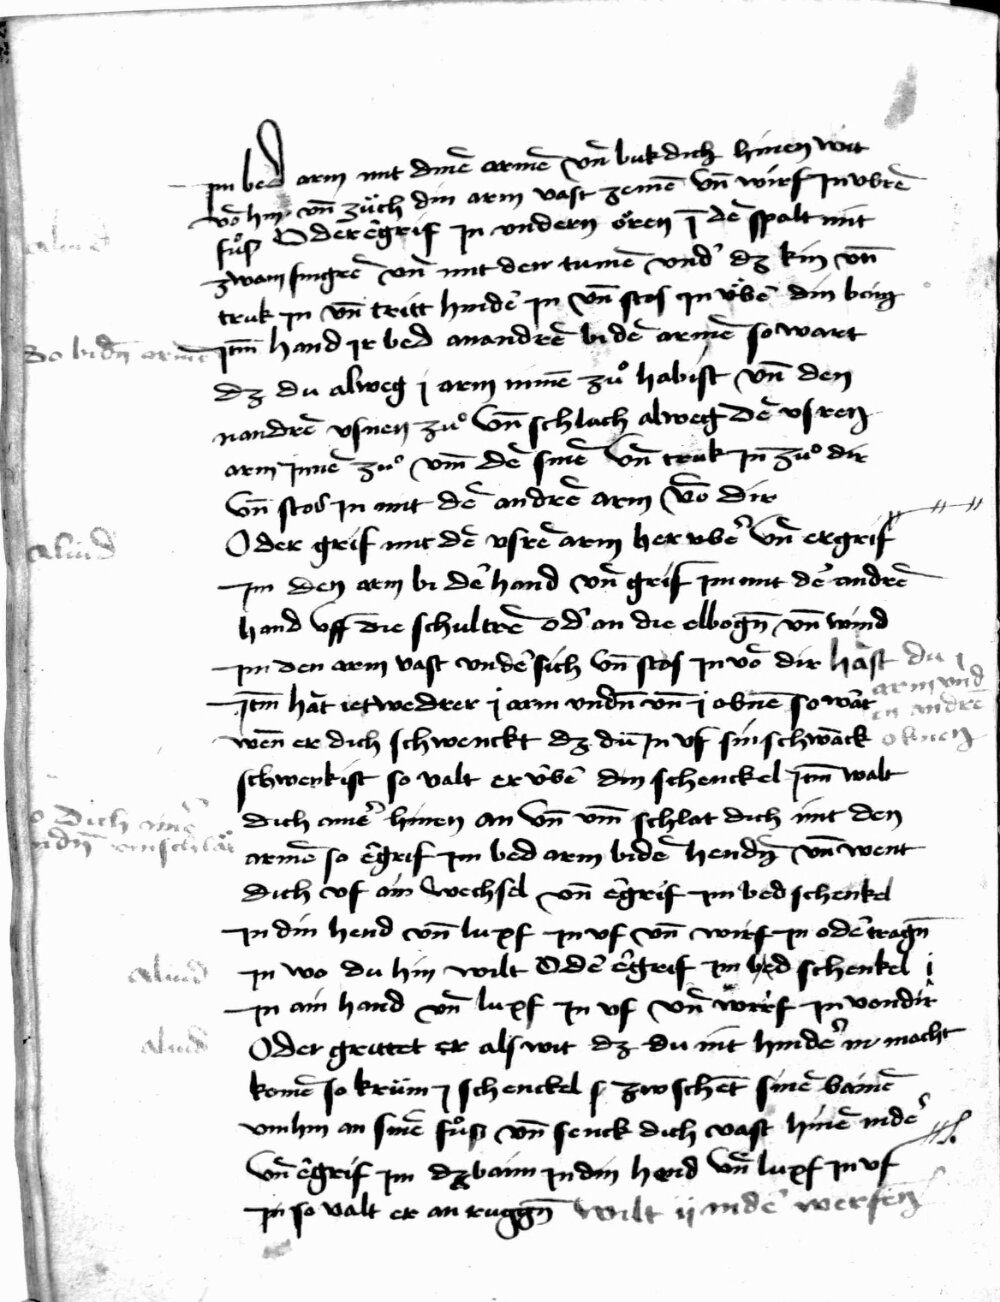 im bed arm mit dinē armē vn̄ buk dich hinen wit
vō him vn̄ züch din arm vast zemē vn̄ wirf in vbrē
fůß Oder ēgrif in vndern oren ī dē spalt mit
aliud
zwain fingrē vn̄ mit den tumē vnd' dz kin vn̄
truk in vn̄ tritt hindē in vn̄ stos in v̈bē din bain
So bi dn̄ armē Itm̄ hand ir bed anandrē bi dē armē so wart
dz du alweg i arm innē zů habist vn̄ den
nandrē vsnen zů vn̄ schlach alweg dē vsren
arm innē zů vm̄ dē sinē vn̄ truk in zů dir
vn̄ stos in mit dē andrē arm vō dir
aliud
Oder grif mit dē vsrē arm her vbē vn̄ ergrif
im den arm bi dē hand vn̄ grif im mit dē andrē
hand vff die schultrē od' an die elbogn̄ vn̄ wind
im den arm vast vndē sich vn̄ stos in vō dir hāst du i
arm vnd
Itm̄ hāt ietwedrer i arm vndn̄ vn̄ i obnē so wār
en andrē
wen̄ er dich schwenckt dz du in vf sin schwāck
obnen
schwenkist so valt er v̈bē din schenckel Itm̄ walt
dich ainē hinen an vn̄ vm̄ schlat dich mit den
dich ainē
armē so ēgrif im bed arm bi dē hendn̄ vn̄ went
dich vf ain wechsel vn̄ ēgrif im bed schenkel
in din hend vn̄ lupf in vf vn̄ wirf in odē tragn̄
aliud
in wo du hin wilt Odē ēgrif im bed schenkel i
in ain hand vn̄ lupf in vf vn̄ wirf in von dir
aliud
Oder grittet er als wit dz du nit hindē in macht
komē so krüm i schenckel zwschēt sinē bainē
vmhin an sinē fůß vn̄ senck dich vast hinē nidē
vn̄ ēgrif im dz bain in din hend vn̄ lupf in vf
in so valt er an ruggn̄ wilt ij nidē werfen